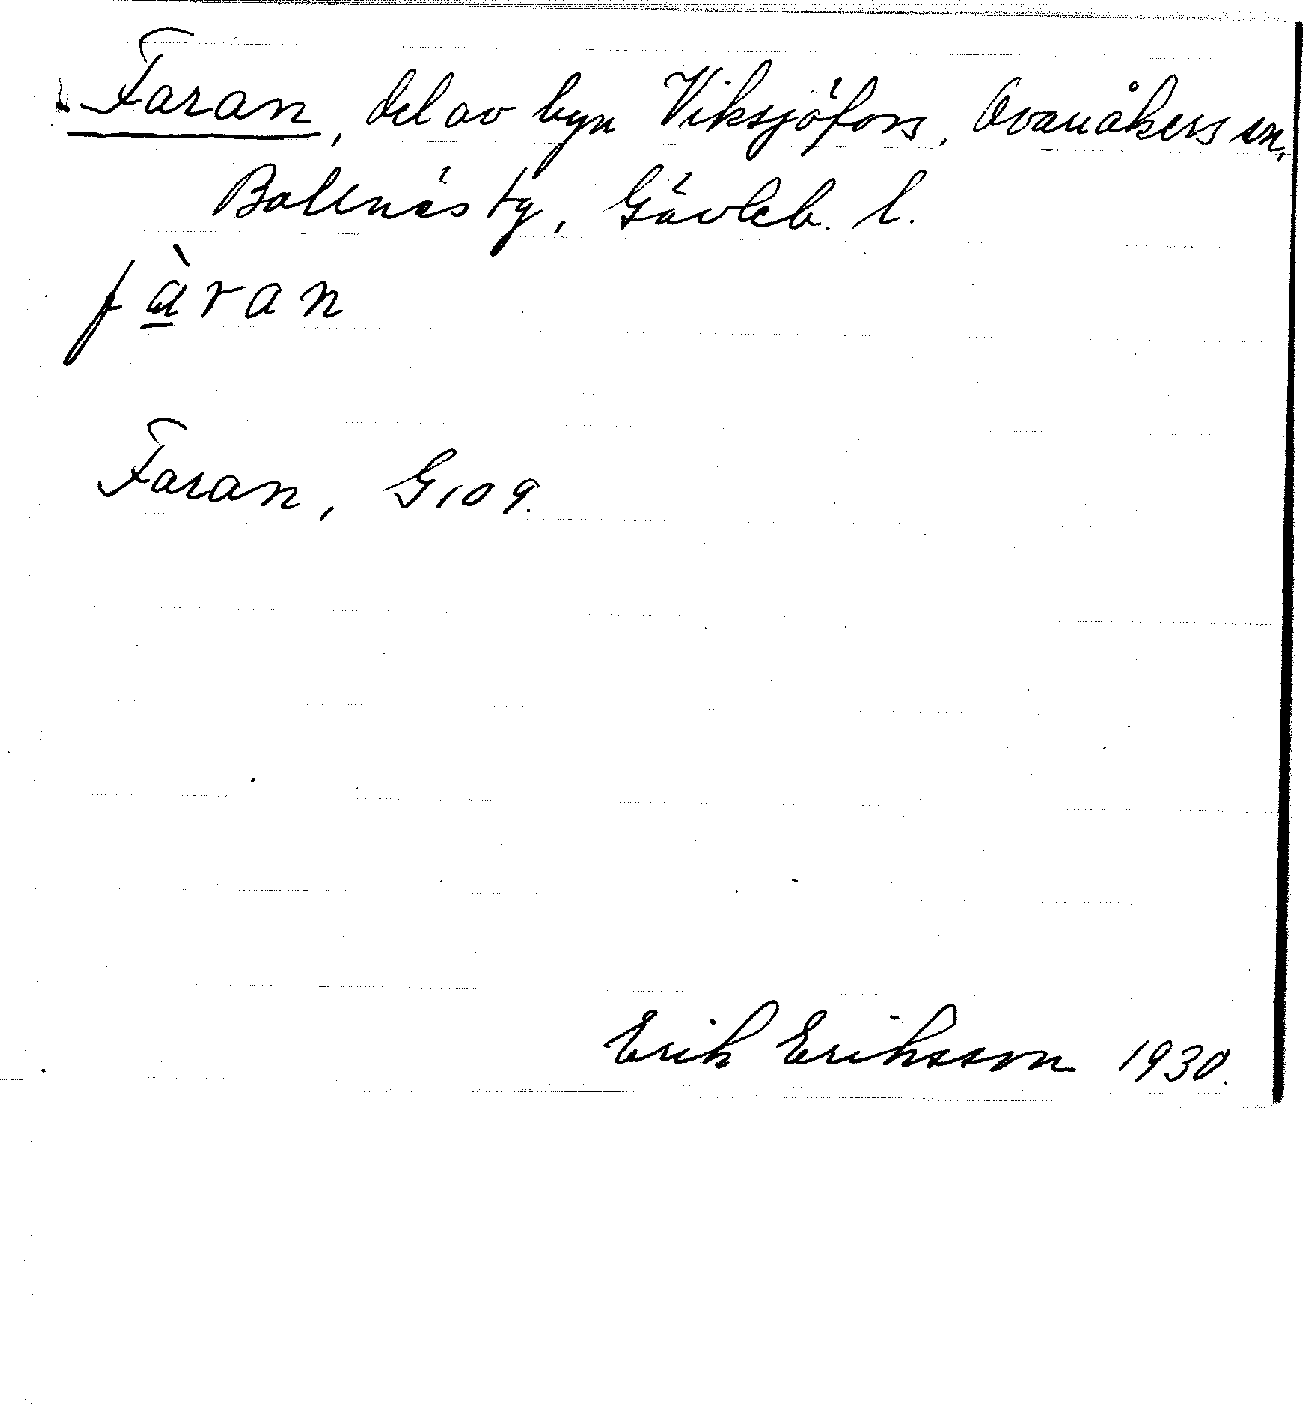 Faran, del av byn Viksjöfors, Ovanåkers sn,
Bollnäs tg, Gävleb. l.
fàran
Faran, G109.
Erik Eriksson 1930.